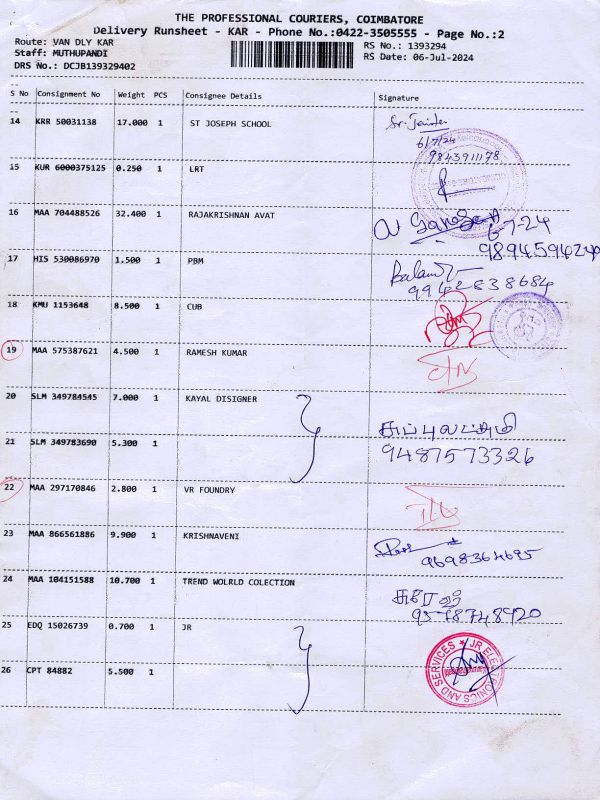 THE PROFESSIONAL COURIERS, COIMBATORE
Delivery Runsheet - KAR - Phone No.:0422-3505555 - Page No.:2
Route: VAN DLY KAR
Staff: MUTHUPANDI
DRS No.: DCJB139329402
RS No.: 1393294
RS Date: 06-Jul-2024
S No Consignment No Weight PCS Consignee Details Signature
14 KRR 50031138 17.000 1 ST JOSEPH SCHOOL
6/7/24
9843911178
15 KUR 6000375125 0.250 1 LRT
16 MAA 704488526 32.400 1 RAJAKRISHNAN AVAT
6-7-24
9894594240
17 HIS 530086970 1.500 1 PBM
9942838684
18 KMU 1153648 8.500 1 CUB
19 MAA 575387621 4.500 1 RAMESH KUMAR
20 SLM 349784545 7.000 1 KAYAL DISIGNER
சுப்புலட்சுமி
21 SLM 349783690 5.300 1
9487573326
22 MAA 297170846 2.800 1 VR FOUNDRY
23 MAA 866561886 9.900 1 KRISHNAVENI
9698364695
24 MAA 104151588 10.700 1 TREND WOLRLD COLECTION
25 EDQ 15026739 0.700 1 JR
26 CPT 84882 5.500 1
JR ELECTRONICS AND SERVICES